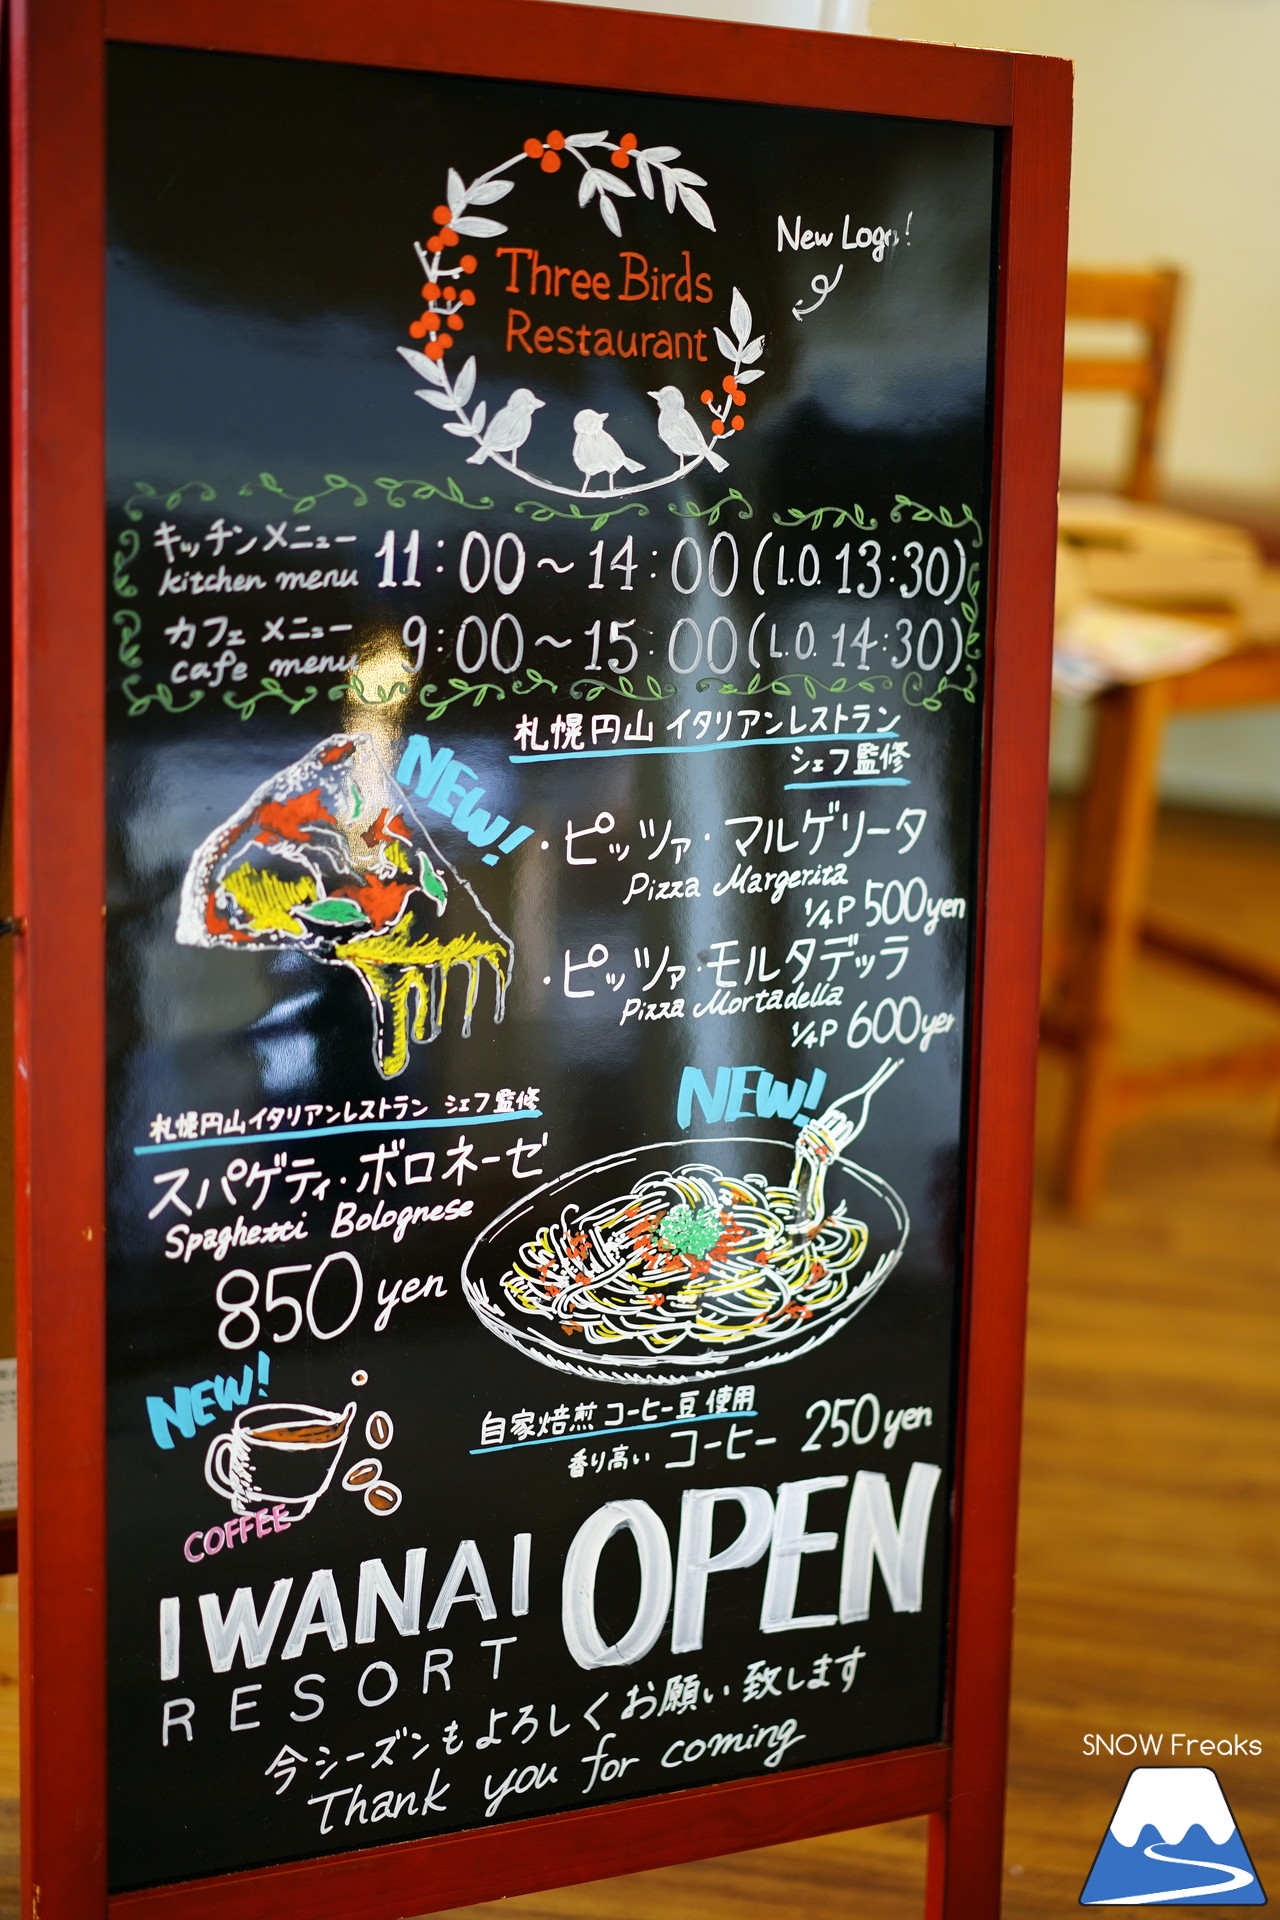 Three Birds
Restaurant
New Logo!
キッチンメニュー
kitchen menu
11:00～14:00(L.O. 13:30)
カフェメニュー
cafe menu
9:00～15:00(L.O. 14:30)
札幌円山 イタリアンレストラン
シェフ監修
NEW!
・ピッツァ・マルゲリータ
Pizza Margerita
1/4P 500yen
・ピッツァ・モルタデッラ
Pizza Mortadella
1/4P 600yen
札幌円山イタリアンレストラン シェフ監修
スパゲティ・ボロネーゼ
Spaghetti Bolognese
850yen
NEW!
NEW!
COFFEE
自家焙煎コーヒー豆使用
香り高い コーヒー 250yen
IWANAI
RESORT
OPEN
今シーズンもよろしくお願い致します
Thank you for coming
SNOW Freaks